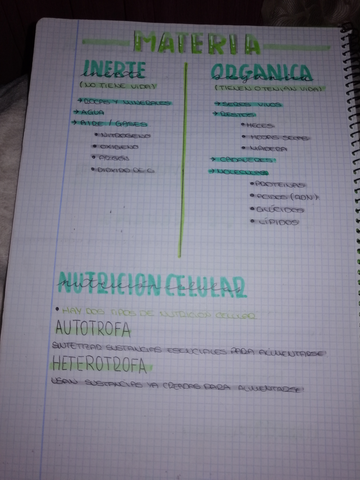 MATERIA
INERTE
(NO TIENE VIDA)
→ROCAS Y MINERALES
→AGUA
→AIRE / GASES
•NITROGENO
•OXIGENO
ORGANICA
(TIENEN O TENIAN VIDA)
→SERES VIVOS
→RESTOS
•HECES
•MADERA
→MOLECULAS
•PROTEINAS
•ACIDOS (ADN)
•GLÚCIDOS
•LÍPIDOS
NUTRICION CELULAR
•HAY DOS TIPOS DE NUTRICION CELULAR
AUTOTROFA
SINTETIZAN SUSTANCIAS ESENCIALES PARA ALIMENTARSE
HETEROTROFA
USAN SUSTANCIAS YA CREADAS PARA ALIMENTARSE